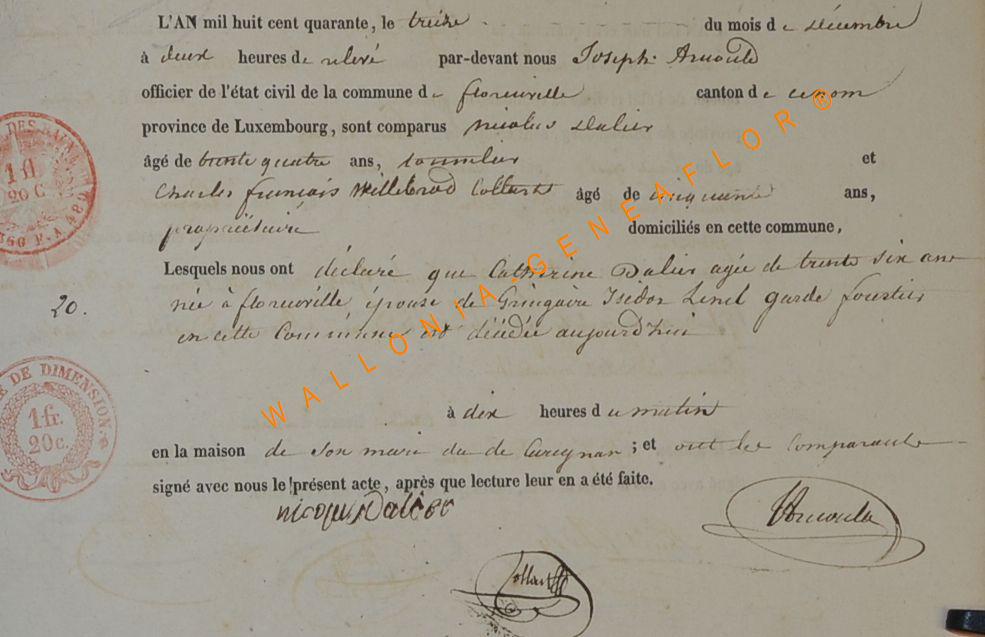 L'AN mil huit cent quarante, le treize du mois de décembre
à deux heures de relevé par-devant nous Joseph Arnould
officier de l'état civil de la commune de florenville canton de
province de Luxembourg, sont comparus nicolas Dalier
âgé de trente quatre ans, et
Charles françois Willebrod Collart âgé de cinquante ans,
propriétaire domiciliés en cette commune,
Lesquels nous ont déclaré que Catherine Dalier agée de trente six ans
20. née à florenville épouse de Gringoire Isidor Linel garde forestier
en cette Commune est décédée aujourd'hui
à dix heures du matin
en la maison de son mari de Carignan ; et ont les comparants
signé avec nous le présent acte, après que lecture leur en a été faite.
nicolas Dalier
JArnould
Collart
1 fl
20 C.
DE DIMENSION
1 fr.
20 c.
WALLONIA-GENEAFLOR®